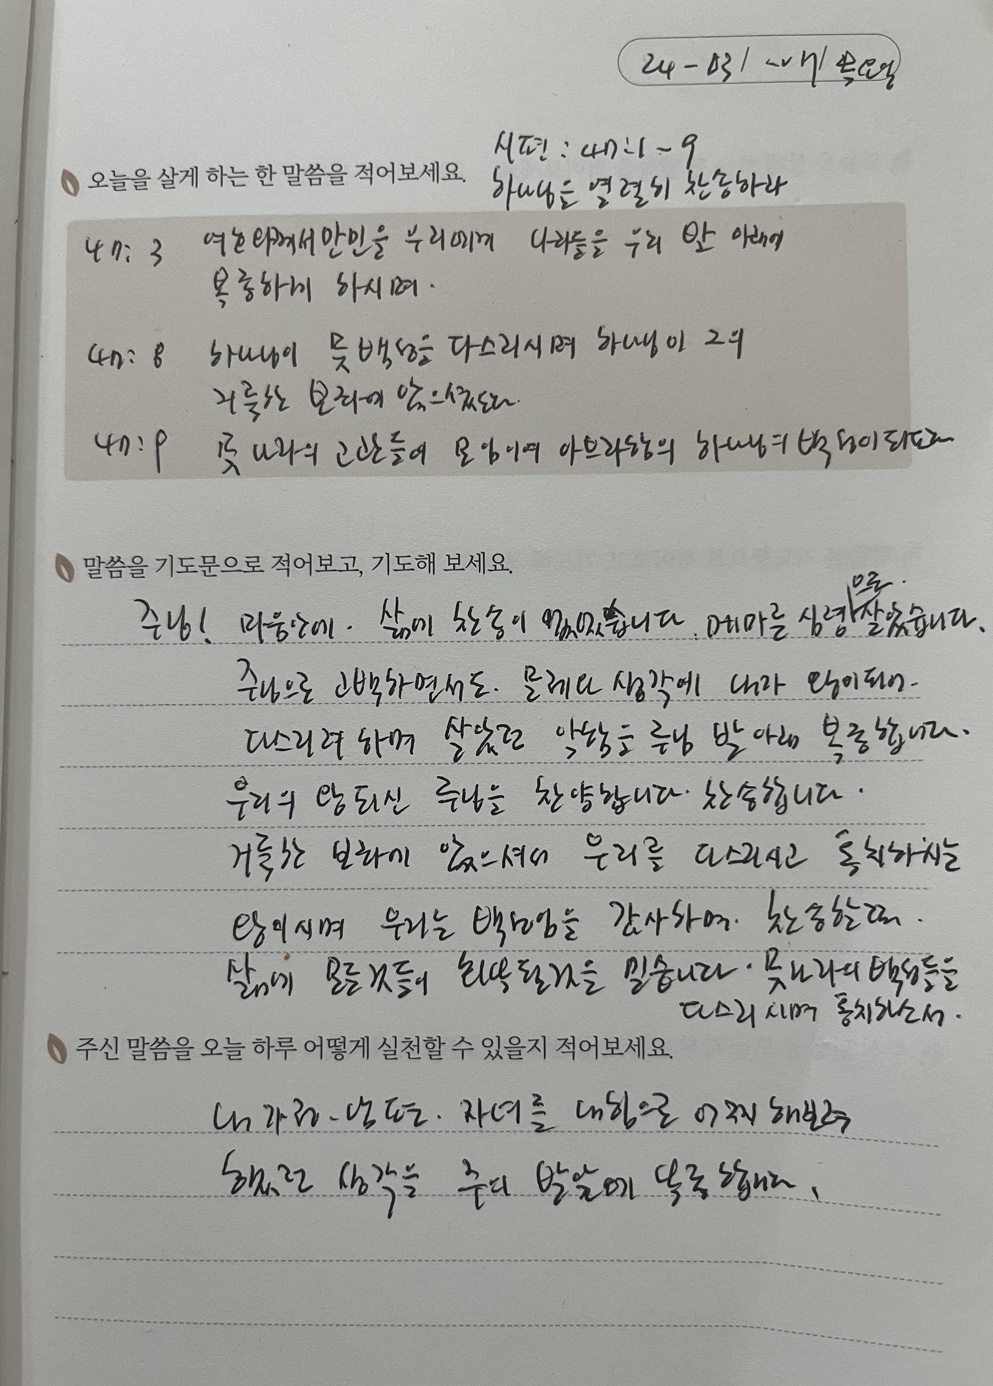 시편 : 47:1 ~ 9
오늘을 살게 하는 한 말씀을 적어보세요.
하나님을 열렬히 찬송하라
47: 3 여호와께서 만민을 우리에게 나라들을 우리 발 아래에
복종하게 하시며.
47: 8 하나님이 뭇 백성을 다스리시며 하나님이 그의
거룩한 보좌에 앉으셨도다.
47: 9 뭇 나라의 고관들이 모임이여 아브라함의 하나님의 백성이 되도다
말씀을 기도문으로 적어보고, 기도해 보세요.
으로.
주님! 마음안에. 삶에 찬송이 없었습니다. 메마른 심령 살았습니다.
주님으로 고백하면서도. 문제와 생각에 내가 왕이되어.
다스리려 하며 살았던 악함을 주님 발 아래 복종합니다.
우리의 왕 되신 주님을 찬양합니다. 찬송합니다.
거룩한 보좌에 앉으셔서 우리를 다스리시고 통치하시는
왕이시며 우리는 백성임을 감사하며. 찬송할때.
삶에 모든것들이 회복될것을 믿습니다. 뭇나라의 백성들을
다스리시며 통치하소서.
주신 말씀을 오늘 하루 어떻게 실천할 수 있을지 적어보세요.
남편. 자녀를 내힘으로 어찌 해보려
했던 생각을 주의 발앞에 복종합니다.